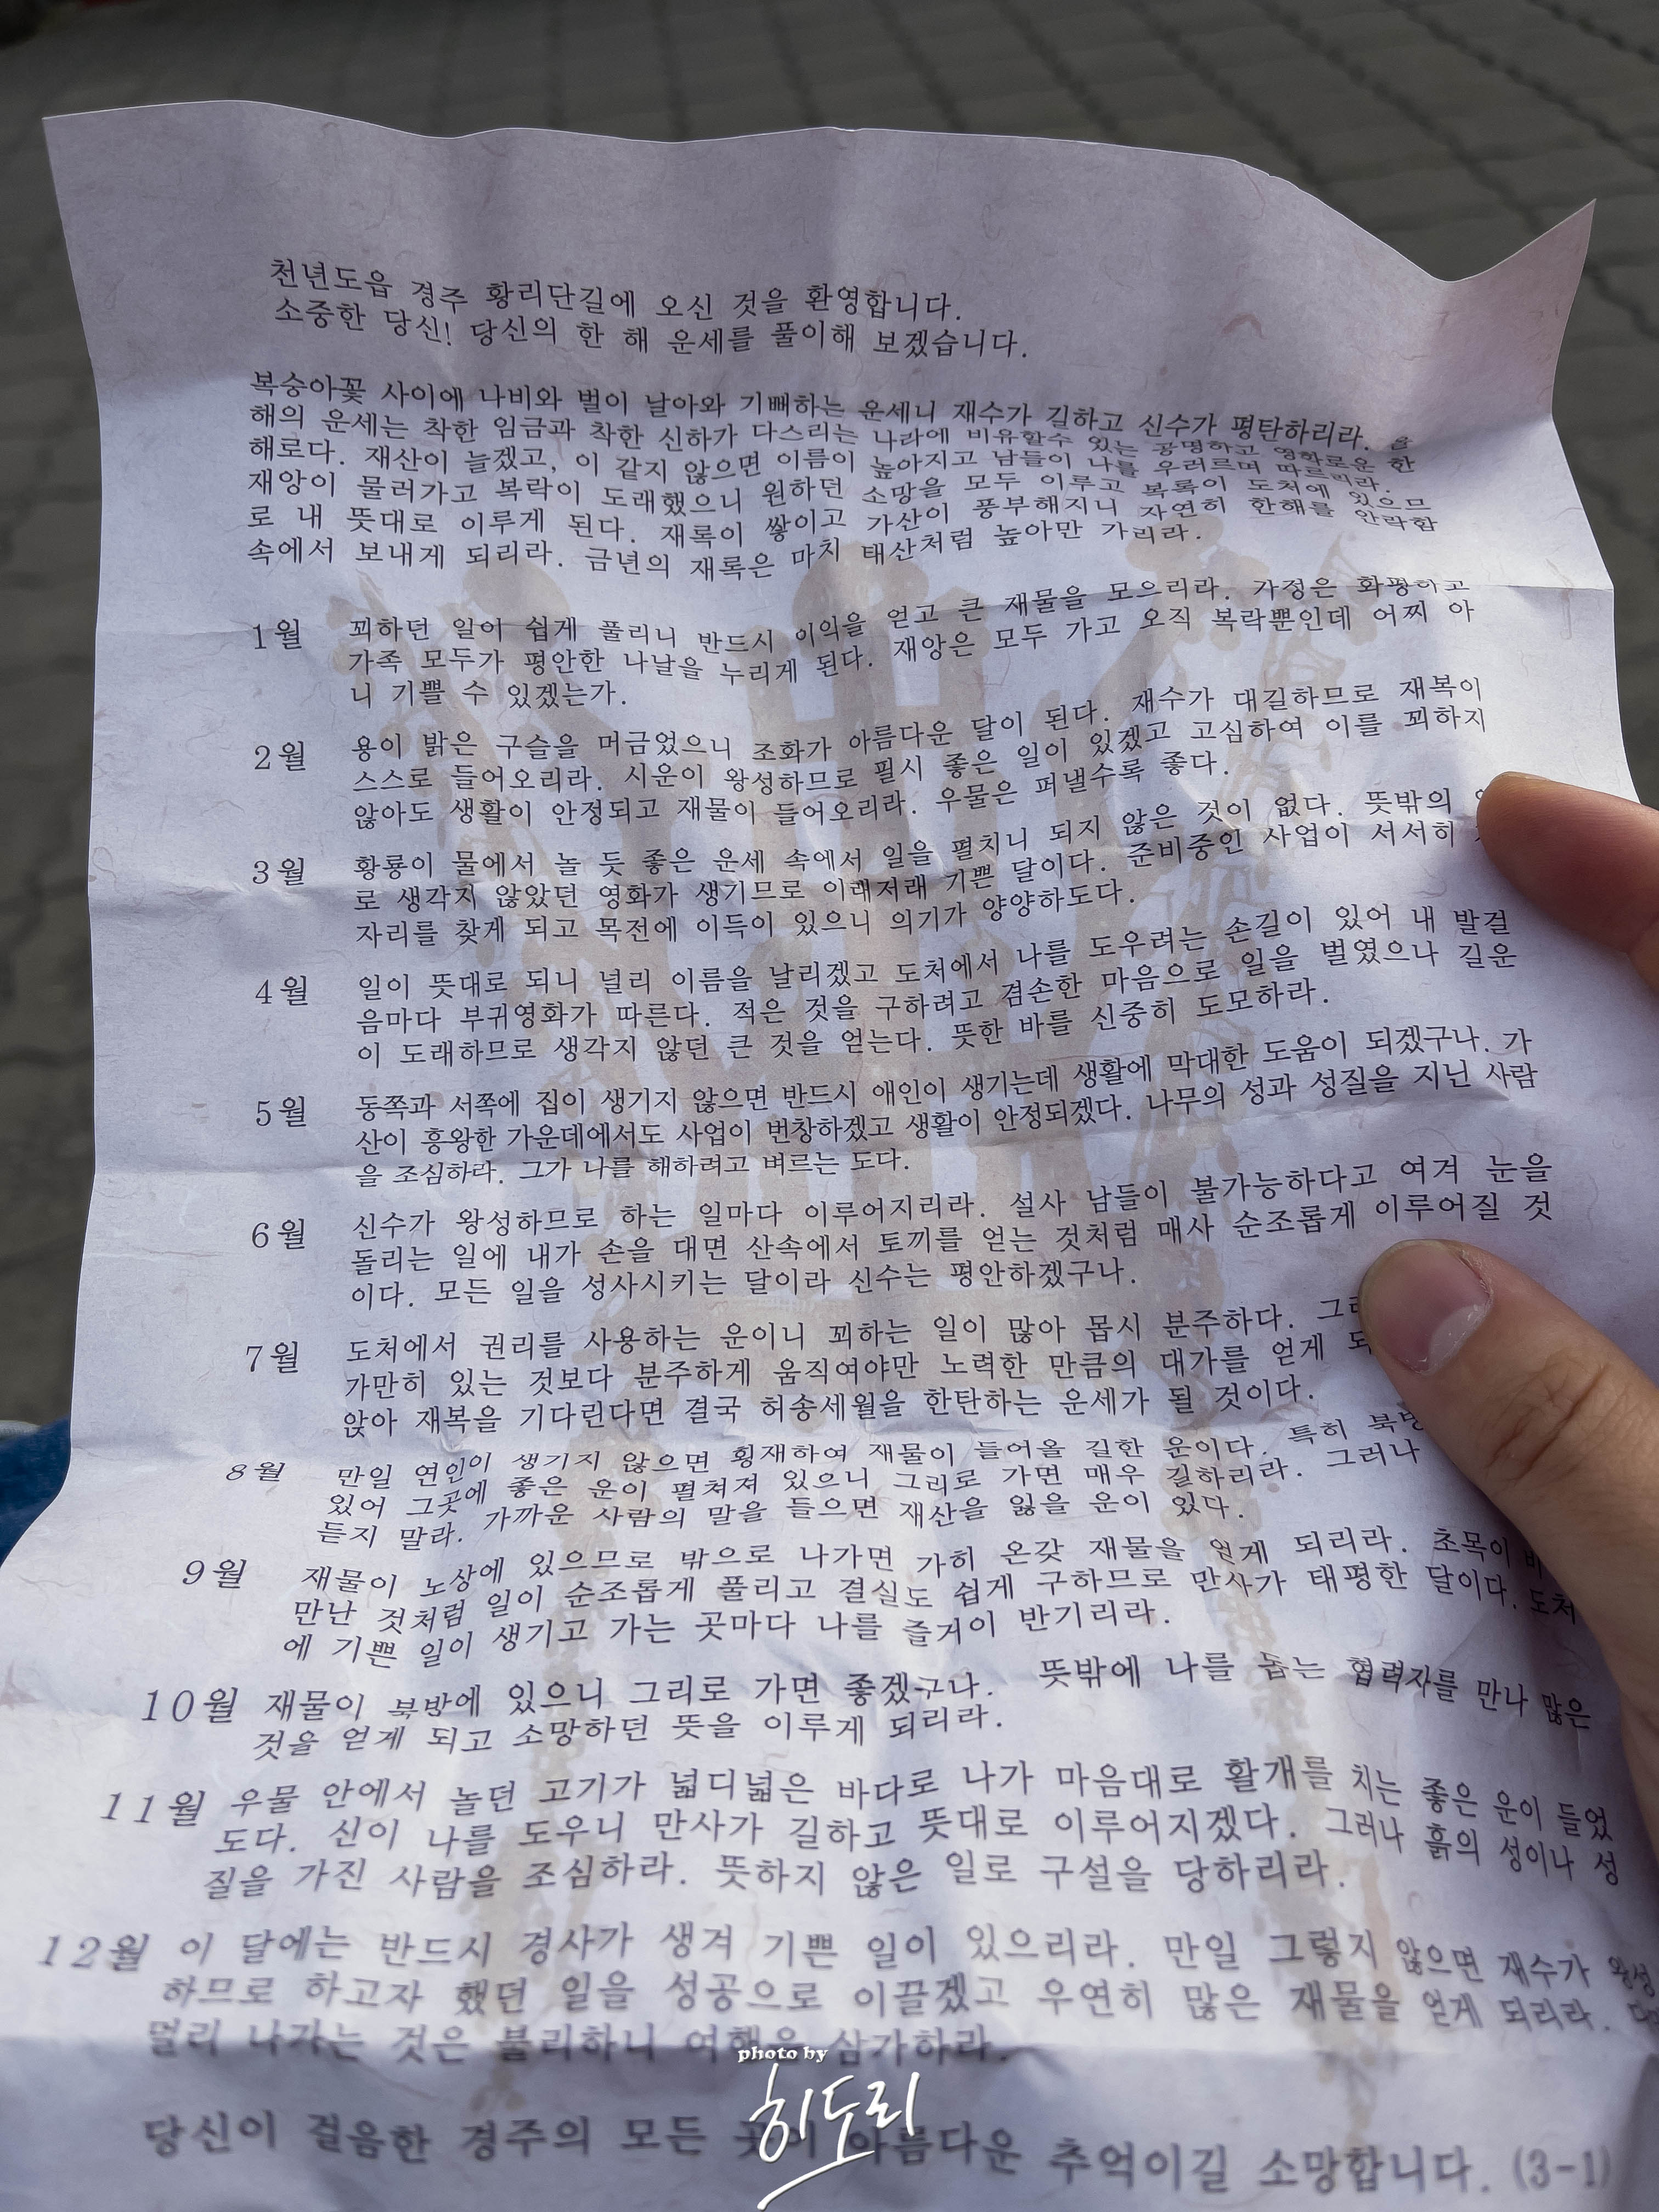 천년도읍 경주 황리단길에 오신 것을 환영합니다.
소중한 당신! 당신의 한 해 운세를 풀이해 보겠습니다.
복숭아꽃 사이에 나비와 벌이 날아와 기뻐하는 운세니 재수가 길하고 신수가 평탄하리라. 올
해의 운세는 착한 임금과 착한 신하가 다스리는 나라에 비유할수 있는 공명하고 영화로운 한
해로다. 재산이 늘겠고, 이 같지 않으면 이름이 높아지고 남들이 나를 우러르며 따르리라.
재앙이 물러가고 복락이 도래했으니 원하던 소망을 모두 이루고 복록이 도처에 있으므
로 내 뜻대로 이루게 된다. 재록이 쌓이고 가산이 풍부해지니 자연히 한해를 안락함
속에서 보내게 되리라. 금년의 재록은 마치 태산처럼 높아만 가리라.
1월 꾀하던 일이 쉽게 풀리니 반드시 이익을 얻고 큰 재물을 모으리라. 가정은 화평하고
가족 모두가 평안한 나날을 누리게 된다. 재앙은 모두 가고 오직 복락뿐인데 어찌 아
니 기쁠 수 있겠는가.
2월 용이 밝은 구슬을 머금었으니 조화가 아름다운 달이 된다. 재수가 대길하므로 재복이
스스로 들어오리라. 시운이 왕성하므로 필시 좋은 일이 있겠고 고심하여 이를 꾀하지
않아도 생활이 안정되고 재물이 들어오리라. 우물은 퍼낼수록 좋다.
3월 황룡이 물에서 놀 듯 좋은 운세 속에서 일을 펼치니 되지 않은 것이 없다. 뜻밖의
로 생각지 않았던 영화가 생기므로 이래저래 기쁜 달이다. 준비중인 사업이 서서히
자리를 찾게 되고 목전에 이득이 있으니 의기가 양양하도다.
4월 일이 뜻대로 되니 널리 이름을 날리겠고 도처에서 나를 도우려는 손길이 있어 내 발걸
음마다 부귀영화가 따른다. 적은 것을 구하려고 겸손한 마음으로 일을 벌였으나 길운
이 도래하므로 생각지 않던 큰 것을 얻는다. 뜻한 바를 신중히 도모하라.
5월 동쪽과 서쪽에 집이 생기지 않으면 반드시 애인이 생기는데 생활에 막대한 도움이 되겠구나. 가
산이 흥왕한 가운데에서도 사업이 번창하겠고 생활이 안정되겠다. 나무의 성과 성질을 지닌 사람
을 조심하라. 그가 나를 해하려고 벼르는 도다.
6월 신수가 왕성하므로 하는 일마다 이루어지리라. 설사 남들이 불가능하다고 여겨 눈을
돌리는 일에 내가 손을 대면 산속에서 토끼를 얻는 것처럼 매사 순조롭게 이루어질 것
이다. 모든 일을 성사시키는 달이라 신수는 평안하겠구나.
7월 도처에서 권리를 사용하는 운이니 꾀하는 일이 많아 몹시 분주하다.
가만히 있는 것보다 분주하게 움직여야만 노력한 만큼의 대가를 얻게
앉아 재복을 기다린다면 결국 허송세월을 한탄하는 운세가 될 것이다.
8월 만일 연인이 생기지 않으면 횡재하여 재물이 들어올 길한 운이다. 특히
있어 그곳에 좋은 운이 펼쳐져 있으니 그리로 가면 매우 길하리라. 그러나
듣지 말라. 가까운 사람의 말을 들으면 재산을 잃을 운이 있다.
9월 재물이 노상에 있으므로 밖으로 나가면 가히 온갖 재물을 얻게 되리라. 초목이
만난 것처럼 일이 순조롭게 풀리고 결실도 쉽게 구하므로 만사가 태평한 달이다. 도처
에 기쁜 일이 생기고 가는 곳마다 나를 즐거이 반기리라.
10월 재물이 북방에 있으니 그리로 가면 좋겠구나. 뜻밖에 나를 돕는 협력자를 만나 많은
것을 얻게 되고 소망하던 뜻을 이루게 되리라.
11월 우물 안에서 놀던 고기가 넓디넓은 바다로 나가 마음대로 활개를 치는 좋은 운이 들었
도다. 신이 나를 도우니 만사가 길하고 뜻대로 이루어지겠다. 그러나 흙의 성이나 성
질을 가진 사람을 조심하라. 뜻하지 않은 일로 구설을 당하리라.
12월 이 달에는 반드시 경사가 생겨 기쁜 일이 있으리라. 만일 그렇지 않으면 재수가 왕성
하므로 하고자 했던 일을 성공으로 이끌겠고 우연히 많은 재물을 얻게 되리라.
멀리 나가는 것은 불리하니 여행을 삼가하라.
당신이 걸음한 경주의 모든 아름다운 추억이길 소망합니다. (3-1)
photo by
히도리